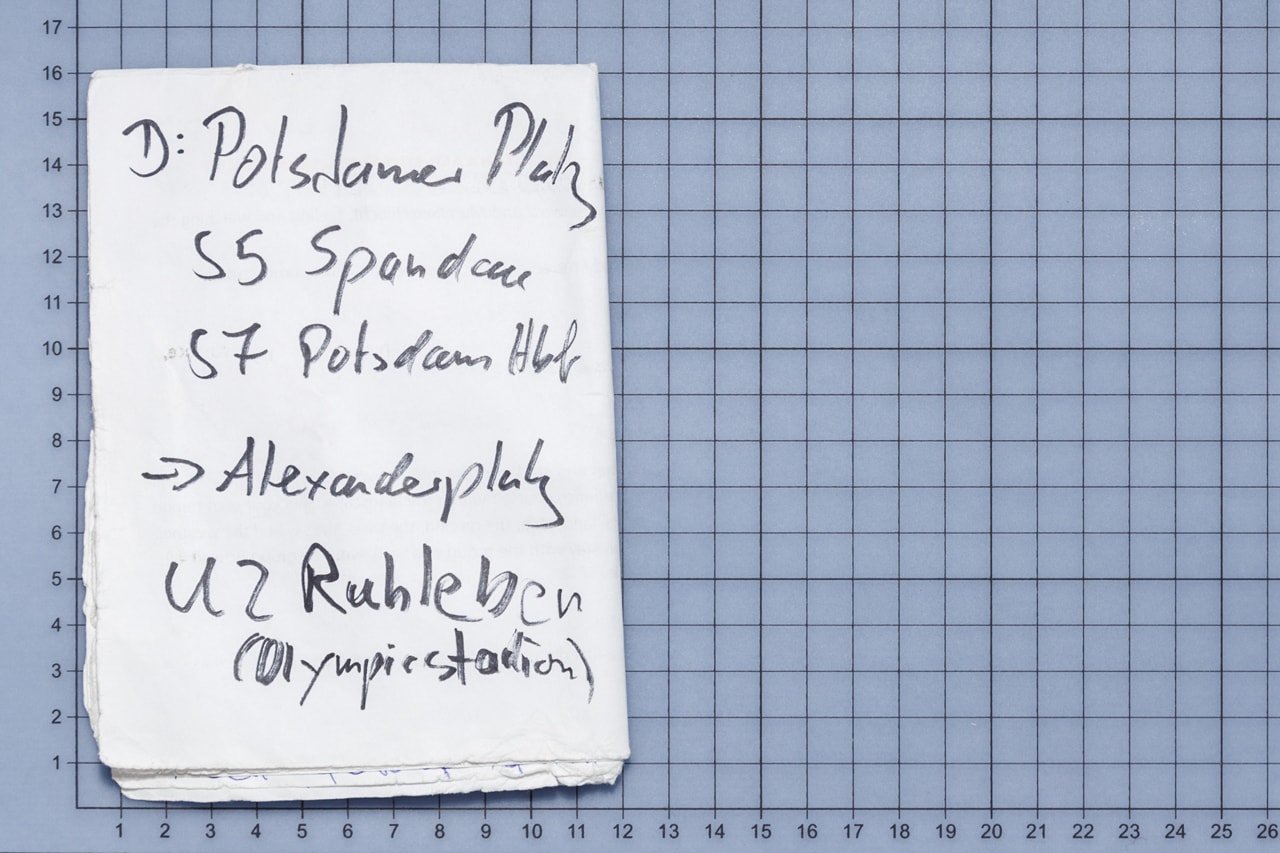 D: Potsdamer Platz
S5 Spandau
S7 Potsdam Hbf
→ Alexanderplatz
U2 Ruhleben
(Olympiastadion)
17
16
15
14
13
12
11
10
9
8
7
6
5
4
3
2
1
1 2 3 4 5 6 7 8 9 10 11 12 13 14 15 16 17 18 19 20 21 22 23 24 25 26